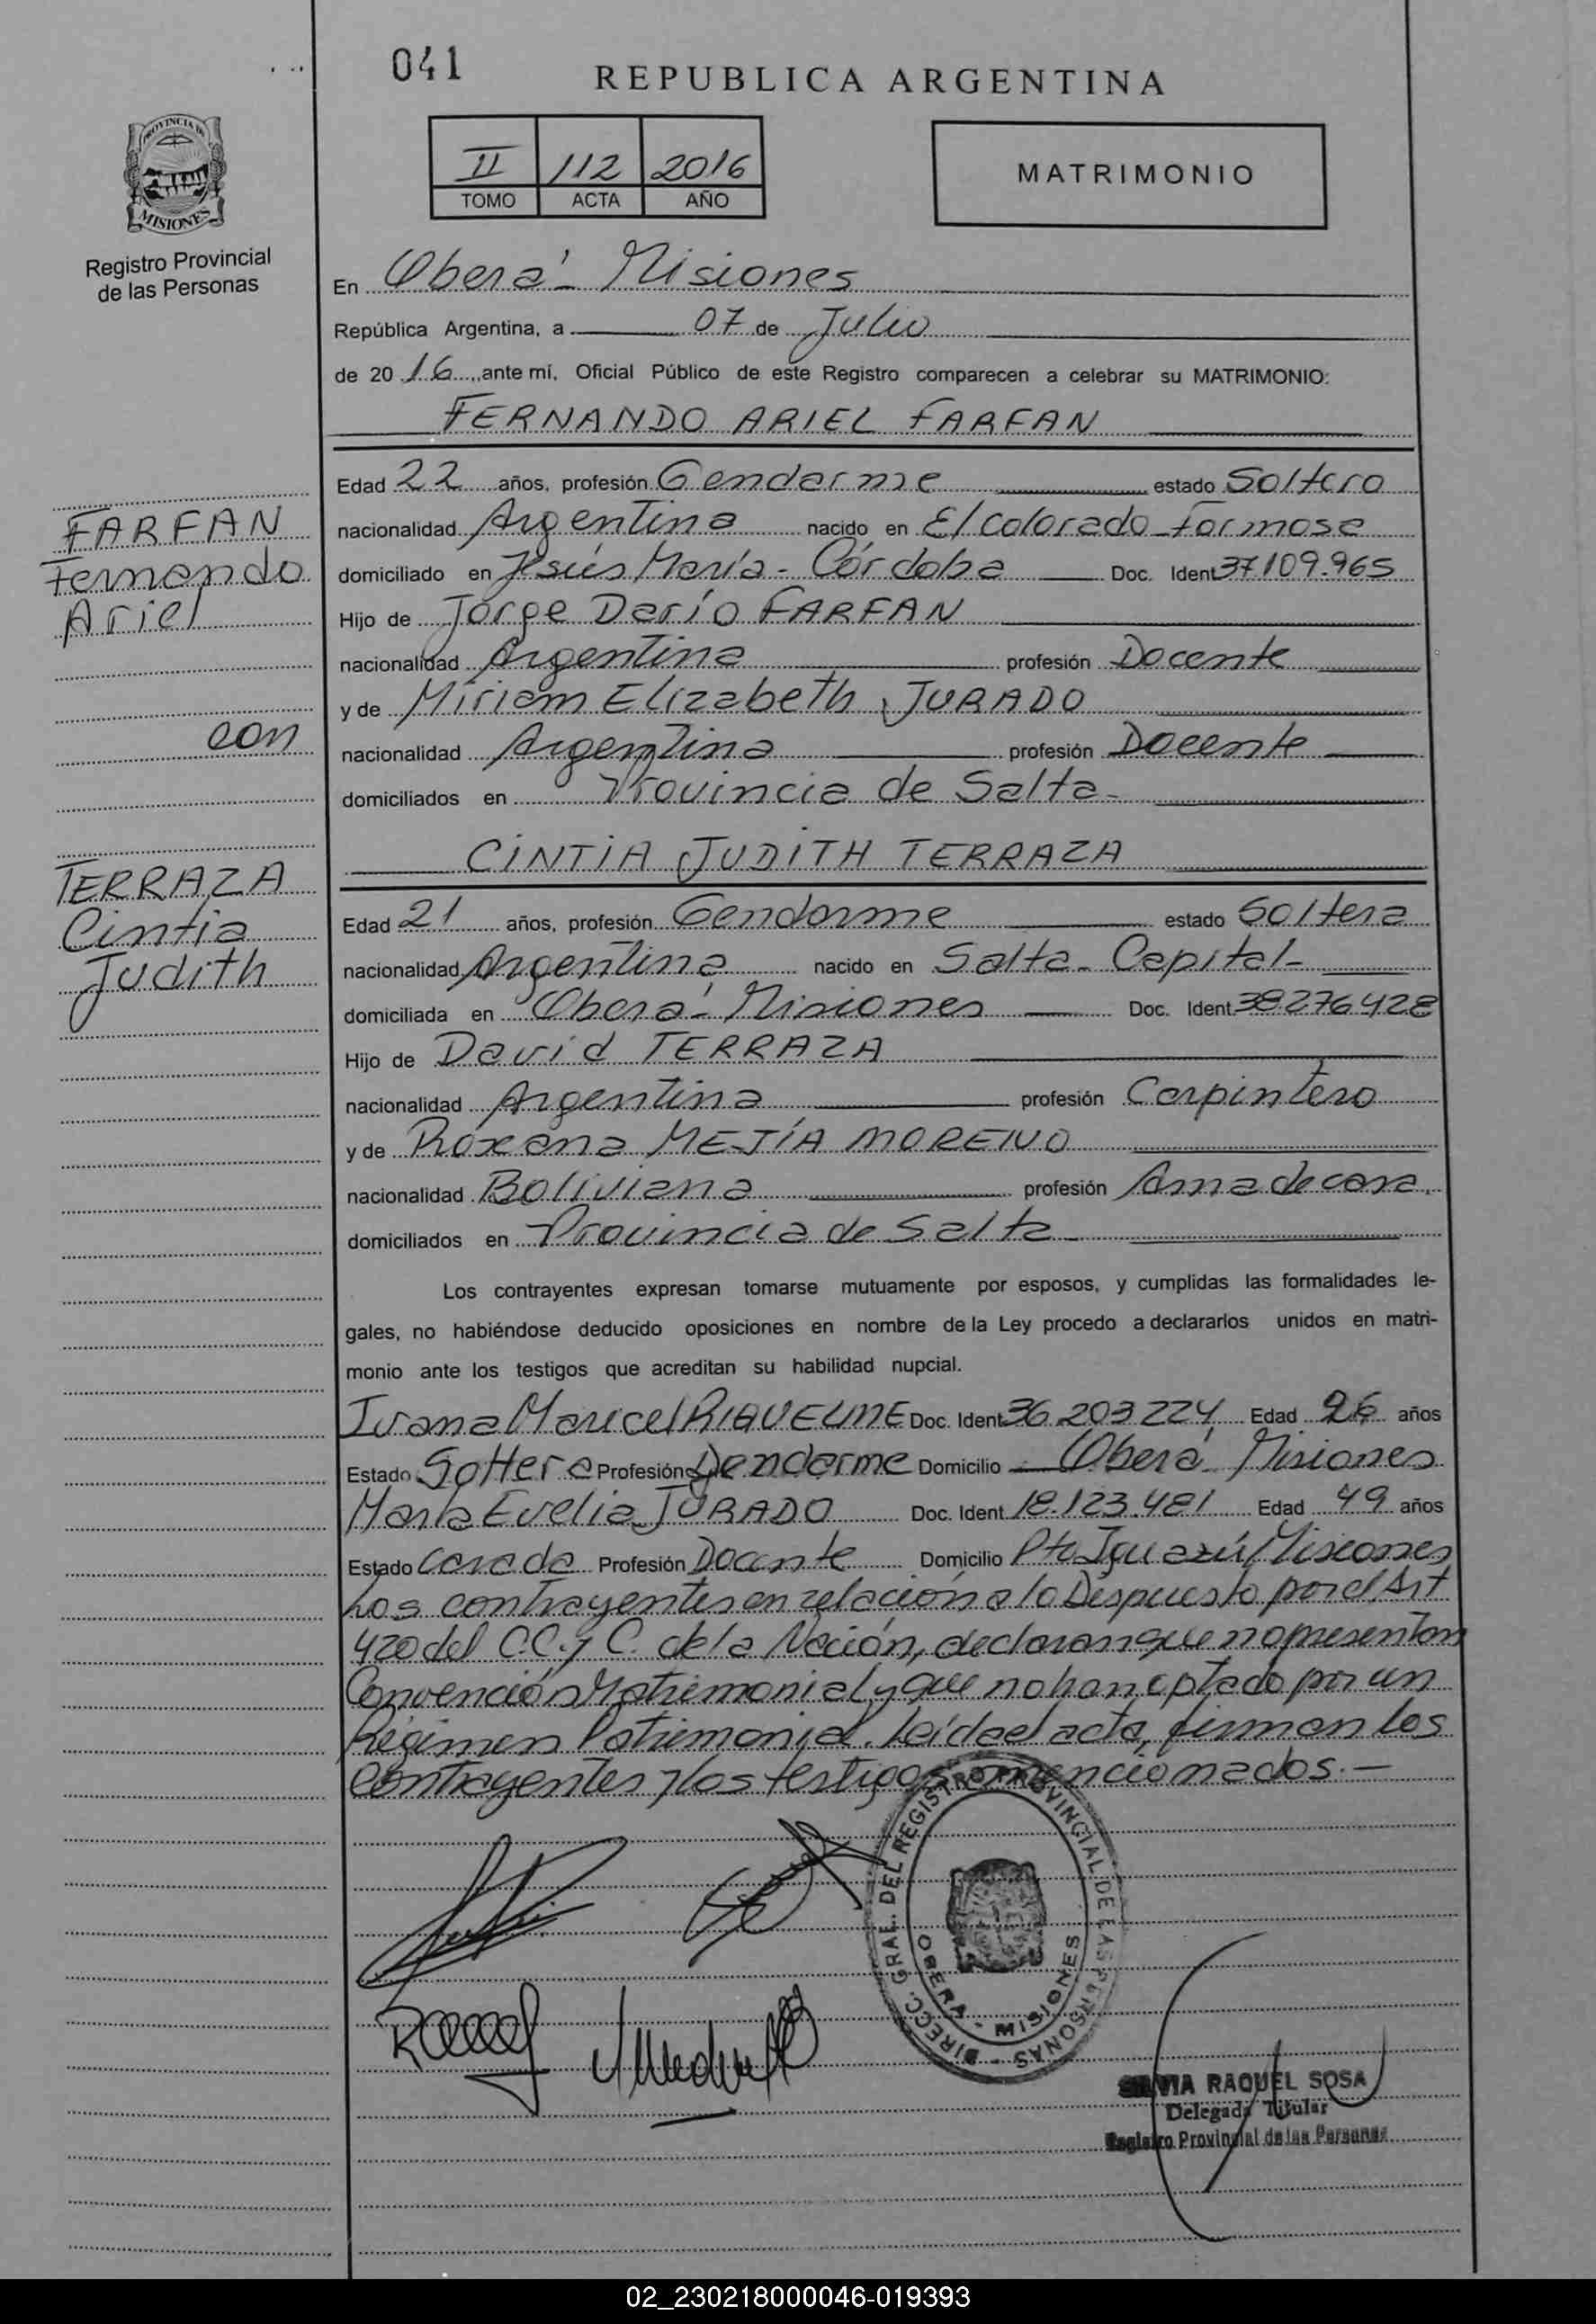 041
REPUBLICA ARGENTINA
PROVINCIA DE
MISIONES
Registro Provincial
de las Personas
II 112 2016
TOMO ACTA AÑO
MATRIMONIO
En Oberá - Misiones
República Argentina, a 07 de Julio
de 20 16, ante mí, Oficial Público de este Registro comparecen a celebrar su MATRIMONIO:
FERNANDO ARIEL FARFAN
FARFAN
Fernando
Ariel
con
TERRAZA
Cintia
Judith
Edad 22 años, profesión Gendarme estado Soltero
nacionalidad Argentina nacido en El Colorado - Formosa
domiciliado en Jesús María - Córdoba Doc. Ident 37.109.965
Hijo de Jorge Darío FARFAN
nacionalidad Argentina profesión Docente
y de Míriam Elizabeth JURADO
nacionalidad Argentina profesión Docente
domiciliados en Provincia de Salta -
CINTIA JUDITH TERRAZA
Edad 21 años, profesión Gendarme estado Soltera
nacionalidad Argentina nacido en Salta - Capital -
domiciliada en Oberá - Misiones Doc. Ident 38276428
Hijo de David TERRAZA
nacionalidad Argentina profesión Carpintero
y de Roxana MEJÍA MORENO
nacionalidad Boliviana profesión Ama de casa.
domiciliados en Provincia de Salta -
Los contrayentes expresan tomarse mutuamente por esposos, y cumplidas las formalidades le-
gales, no habiéndose deducido oposiciones en nombre de la Ley procedo a declararlos unidos en matri-
monio ante los testigos que acreditan su habilidad nupcial.
Ivana Maricel RIQUELME Doc. Ident 36.203.224 Edad 26 años
Estado Soltera Profesión Gendarme Domicilio Oberá - Misiones
Marta Evelia JURADO Doc. Ident 18.123.481 Edad 49 años
Estado Casada Profesión Docente Domicilio Pto Iguazú Misiones
Los contrayentes en relación a lo Dispuesto por el Art
420 del C.C. y C. de la Nación, declaran que no presentan
Convención Matrimonial y que no han optado por un
Régimen Patrimonial. Leída el acta, firman los
contrayentes y los testigos mencionados. —
DIRECC. GRAL. DEL REGISTRO PROVINCIAL DE LAS PERSONAS
OBERA - MISIONES
SILVIA RAQUEL SOSA
Delegada Titular
Registro Provincial de las Personas
02_230218000046-019393